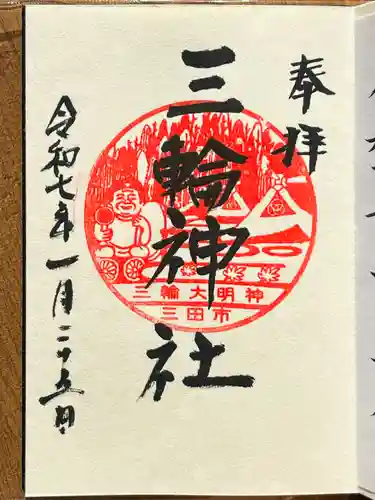 奉拝
三輪神社
三輪大明神
三田市
令和七年一月二十五日